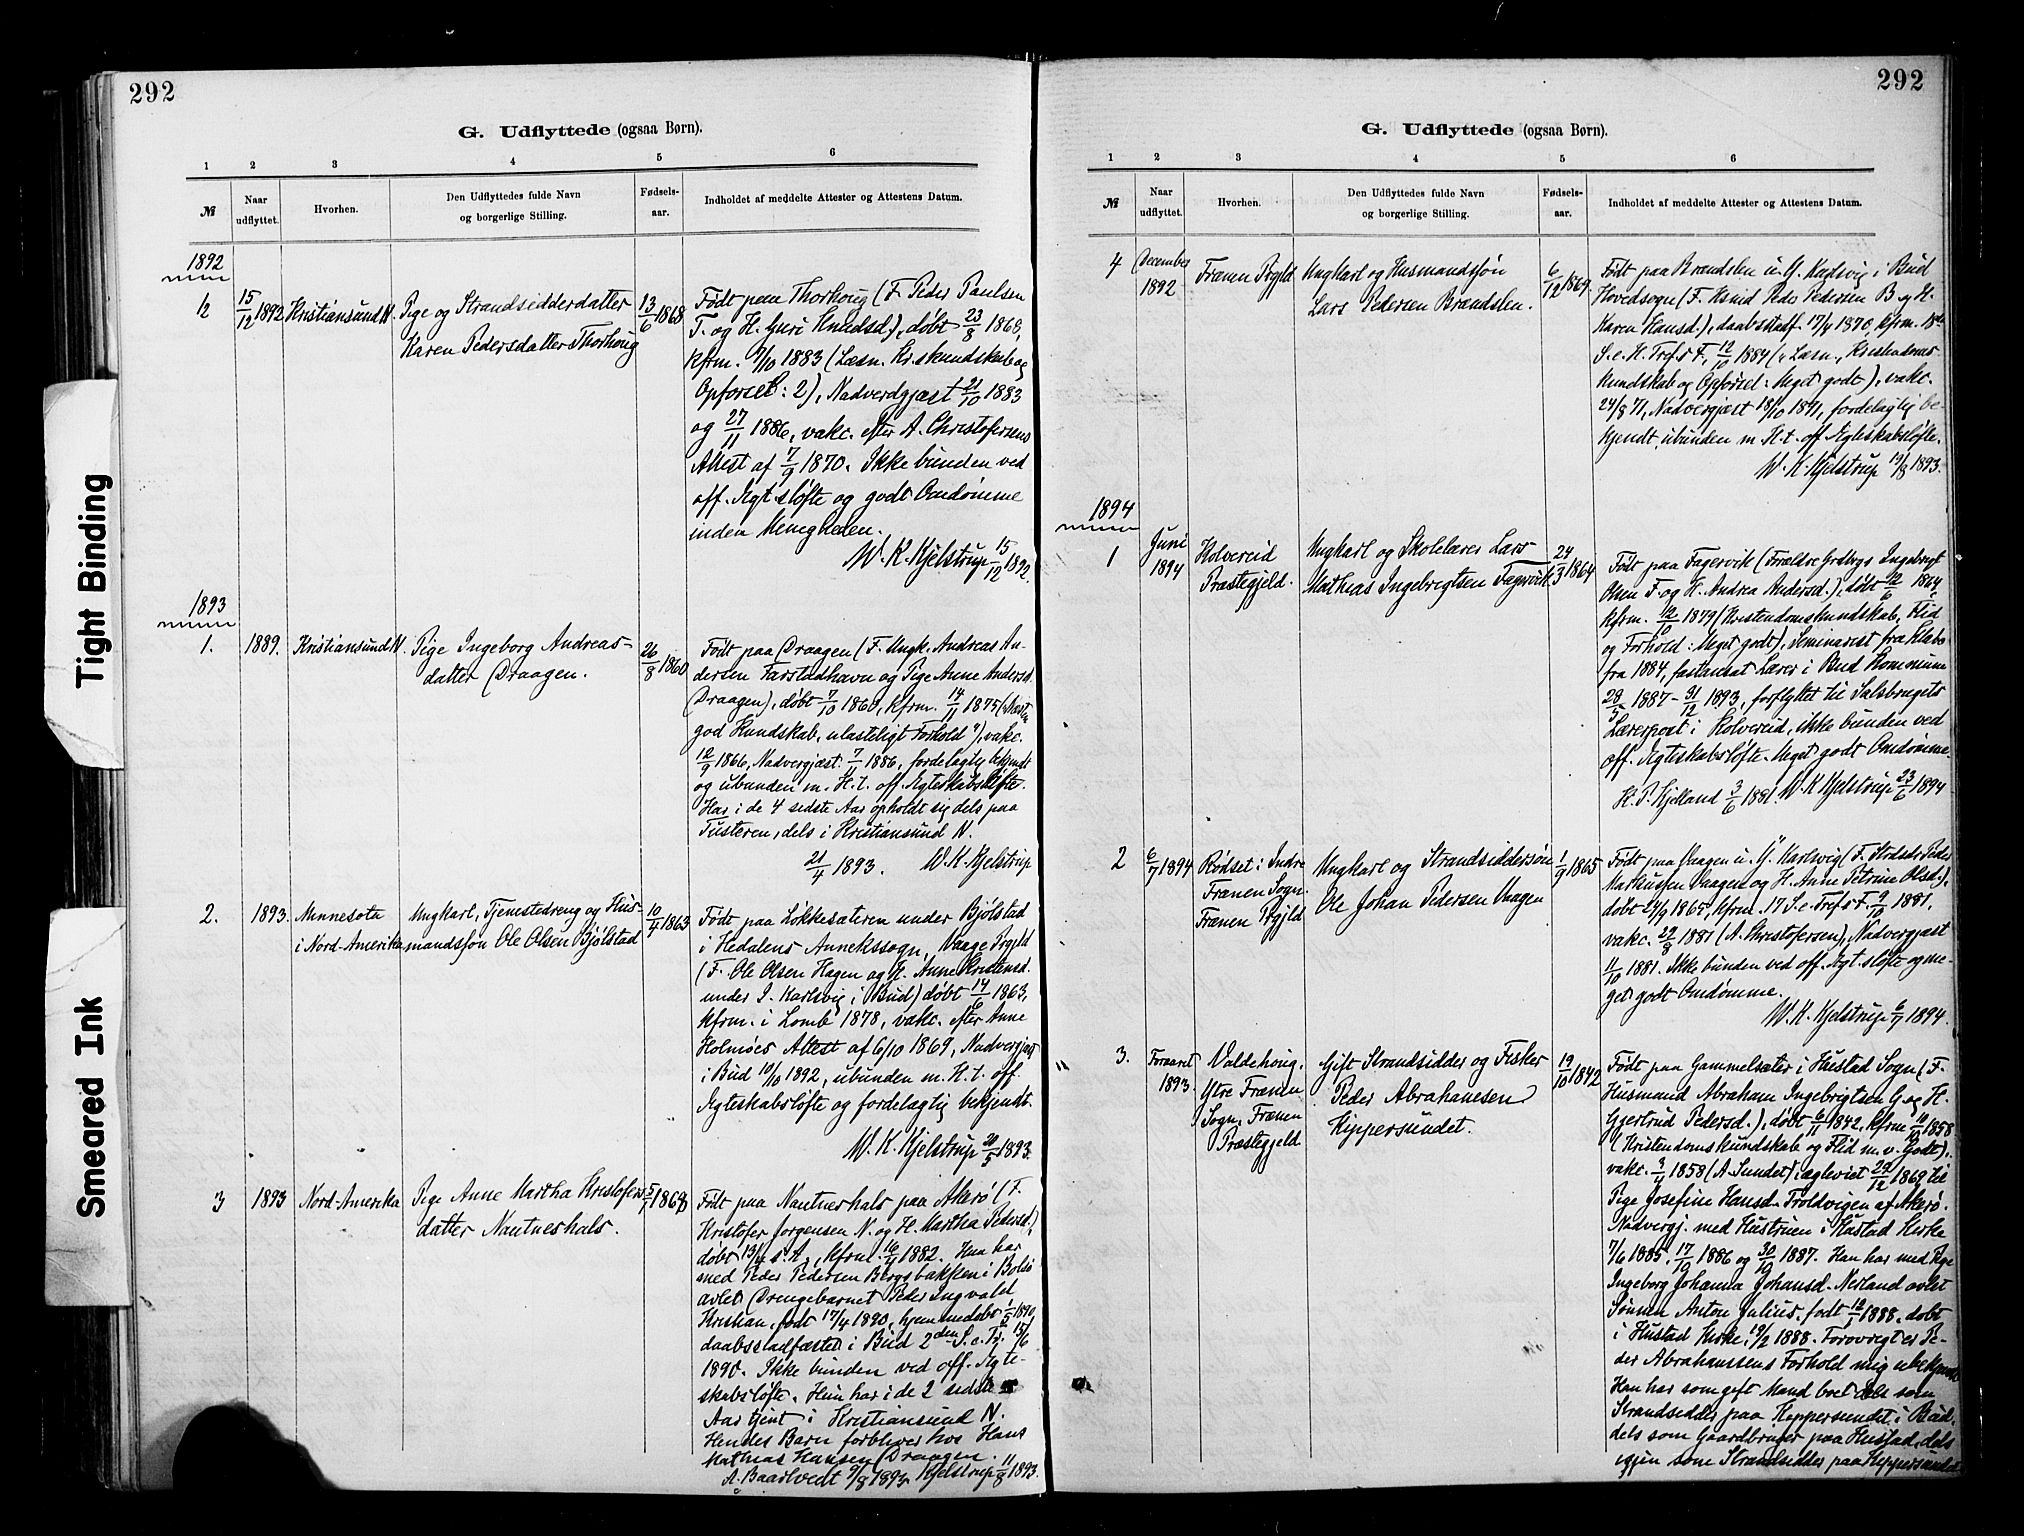 292
G. Udflyttede (ogsaa Børn).
1 2 3 4 5 6
№ Naar udflyttet. Hvorhen. Den Udflyttedes fulde Navn og borgerlige Stilling. Fødselsaar. Indholdet af meddelte Attester og Attestens Datum.
1892
12 15/12 1892 Kristiansund N. Pige og Strandsidderdatter 13/6 1868
Karen Pedersdatter Thorhoug
Født paa Thorhoug (F. Peder Paulsen
T. og H. Guri Knudsd.), døbt 23/8 1868,
kfrm. 7/10 1883 (Læsn. Kr.skundskab og
Opførsel: 2), Nadverdgjæst 21/10 1883
og 27/11 1886, vakc. efter A. Christofersens
Attest af 7/9 1870. Ikke bunden ved
off. Ægt.sløfte og godt Omdømme
inden Menigheden.
W. K. Kjelstrup 15/12 1892.
1893
1. 1889. Kristiansund N. Pige Ingeborg Andreas- 26/8 1860
datter Draagen.
Født paa Draagen (F. Ungk. Andreas An-
dersen Farstadhavn og Pige Anne Andersd.
Draagen), døbt 7/10 1860, kfrm. 14/11 1875 („Næsten
god Kundskab, ulasteligt Forhold"), vakc.
12/9 1866, Nadvergjæst. 7/11 1886, fordelagtig bekjendt
og ubunden m. H. t. off. Ægteskabsløfte.
Har i de 4 sidste Aar opholdt sig dels paa
Tusteren, dels i Kristiansund N.
21/4 1893. W. K. Kjelstrup
2. 1893. Minnesota Ungkarl, Tjenestedreng og Hus- 10/4 1863
i Nord-Amerika mandssøn Ole Olsen Bjølstad
Født paa Løkkesæteren under Bjølstad
i Hedalens Annekssogn, Vaage Prgjld
(F. Ole Olsen Hagen og H. Anne Kristensd.
under G. Karlsvig i Bud) døbt 14/6 1863,
kfrm. i Lomb 1878, vakc. efter Anne
Holmöes Attest af 6/10 1869, Nadvergjæst
i Bud 10/10 1892, ubunden m. H. t. off.
Ægteskabsløfte og fordelagtig bekjendt.
W. K. Kjelstrup 20/5 1893.
3 1893 Nord-Amerika Pige Anne Martha Kristofers- 5/1 1868
datter Nautneshals.
Født paa Nautneshals paa Akerö (F.
Kristofer Jorgensen N. og H. Martha Pedersd.)
døbt 13/4 s. A., kfrm. 16/4 1882. Hun har
med Peder Pedersen Bergsbakken i Bolsö
avlet Drengebarnet Peder Ingvald
Kristian, født 17/4 1890, hjemmedøbt 1/5 1890,
daabsstadfæstet i Bud 2den S. e. Tr. 15/6
1890. Ikke bunden ved off. Ægte-
skabsløfte. Hun har i de 2 sidste
Aar tjent i Kristiansund N.
Hendes Barn forbliver hos Hans
Mathias Hansen Draagen.
A. Baarlvedt 9/8 1893 Kjelstrup 11/8 1893.
292
G. Udflyttede (ogsaa Børn).
1 2 3 4 5 6
№ Naar udflyttet. Hvorhen. Den Udflyttedes fulde Navn og borgerlige Stilling. Fødselsaar. Indholdet af meddelte Attester og Attestens Datum.
4 December 1892 Frænen Prgjld Ungkarl og Husmandssøn 6/12 1869
Lars Pedersen Brændslen.
Født paa Brændslen u. G. Kadsvig i Bud
Hovedsogn (F. Husmd Peder Pedersen B. og H.
Karen Hansd.), daabsstadf. 17/4 1870, kfrm. 18de
S. e. H. Tref.s F. 12/10 1884 („Læsn., Kristendoms-
kundskab og Opførsel: Meget godt), vakc.
24/8 71, Nadvergjæst 18/10 1891, fordelagtig be-
kjendt, ubunden m. H. t. off. Ægteskabsløfte.
W. K. Kjelstrup 19/8 1893.
1894
1 Juni 1894 Kolvereid Præstegjeld. Ungkarl og Skolelærer Lars 24/3 1864
Mathias Ingebrigtsen Fagervik
Født paa Fagervik (Forældre Grdbrgs Ingebrigt
Olsen F. og H. Andrea Andersd.), døbt 12/6 1864,
kfrm. 12/10 1879 (Kristendomskundskab, Flid
og Forhold: Meget godt), Seminarist fra Klæbo
fra 1884, fastansat Lærer i Bud Kommune
28/5 1887 - 31/12 1893, forflyttet til Salsbrugets
Lærerpost i Kolvereid, ikke bunden ved
off. Ægteskabsløfte. Meget godt Omdømme.
K. P. Kjelland 3/6 1881. W. K. Kjelstrup 23/6 1894
2 6/7 1894 Rødset i Indre Frænen Sogn. Frænen Prgjld Ungkarl og Strandsiddersøn 1/9 1865
Ole Johan Pedersen Vaagen
Født paa Vaagen u. G. Karlsvig (F. Strdsdr Peder
Markussen Vaagen og H. Anne Petrine Olsd.),
døbt 24/9 1865, kfrm. 17 S. e. Tref.s F. 9/10 1881,
vakc. 29/8 1881 (A. Christofersen), Nadvergjæst
11/10 1881. Ikke bunden ved off. Ægt.sløfte og me-
get godt Omdømme.
W. K. Kjelstrup 6/7 1894.
3. Foraaret 1893. Valdehoug, Ytre Frænen Sogn, Frænen Præstegjeld Gift Strandsidder og Fisker 19/10 1842
Peder Abrahamsen
Kippersundet.
Født paa Gammelsæter i Hustad Sogn (F.
Husmand Abraham Ingebrigtsen G. og H.
Gjertrud Pedersd.), døbt 6/11 1842, kfrm 10/10 1858
(Kristendomskundskab og Flid m. v. Godt),
vakc. 3/4 1858 (A. Sundet), ægteviet 29/12 1869 til
Pige Josefine Hansd. Troldvigen af Akerö.
Nadvergj. med Hustruen i Hustad Kirke
7/6 1885, 17/10 1886 og 30/10 1887. Han har med Pige
Ingeborg Johanna Johansd. Nerland avlet
Sønnen Anton Julius, født 12/1 1888, døbt
i Hustad Kirke, 19/2 1888. Forøvrigt er Pe-
der Abrahamsens Forhold mig ubekjendt
Han har som gift Mand boet dels som
Strandsidder paa Kippersundet i Bud,
dels som Gaardbruger paa Hustad, dels
igjen som Strandsidder paa Kippersundet
Tight Binding
Smeared Ink